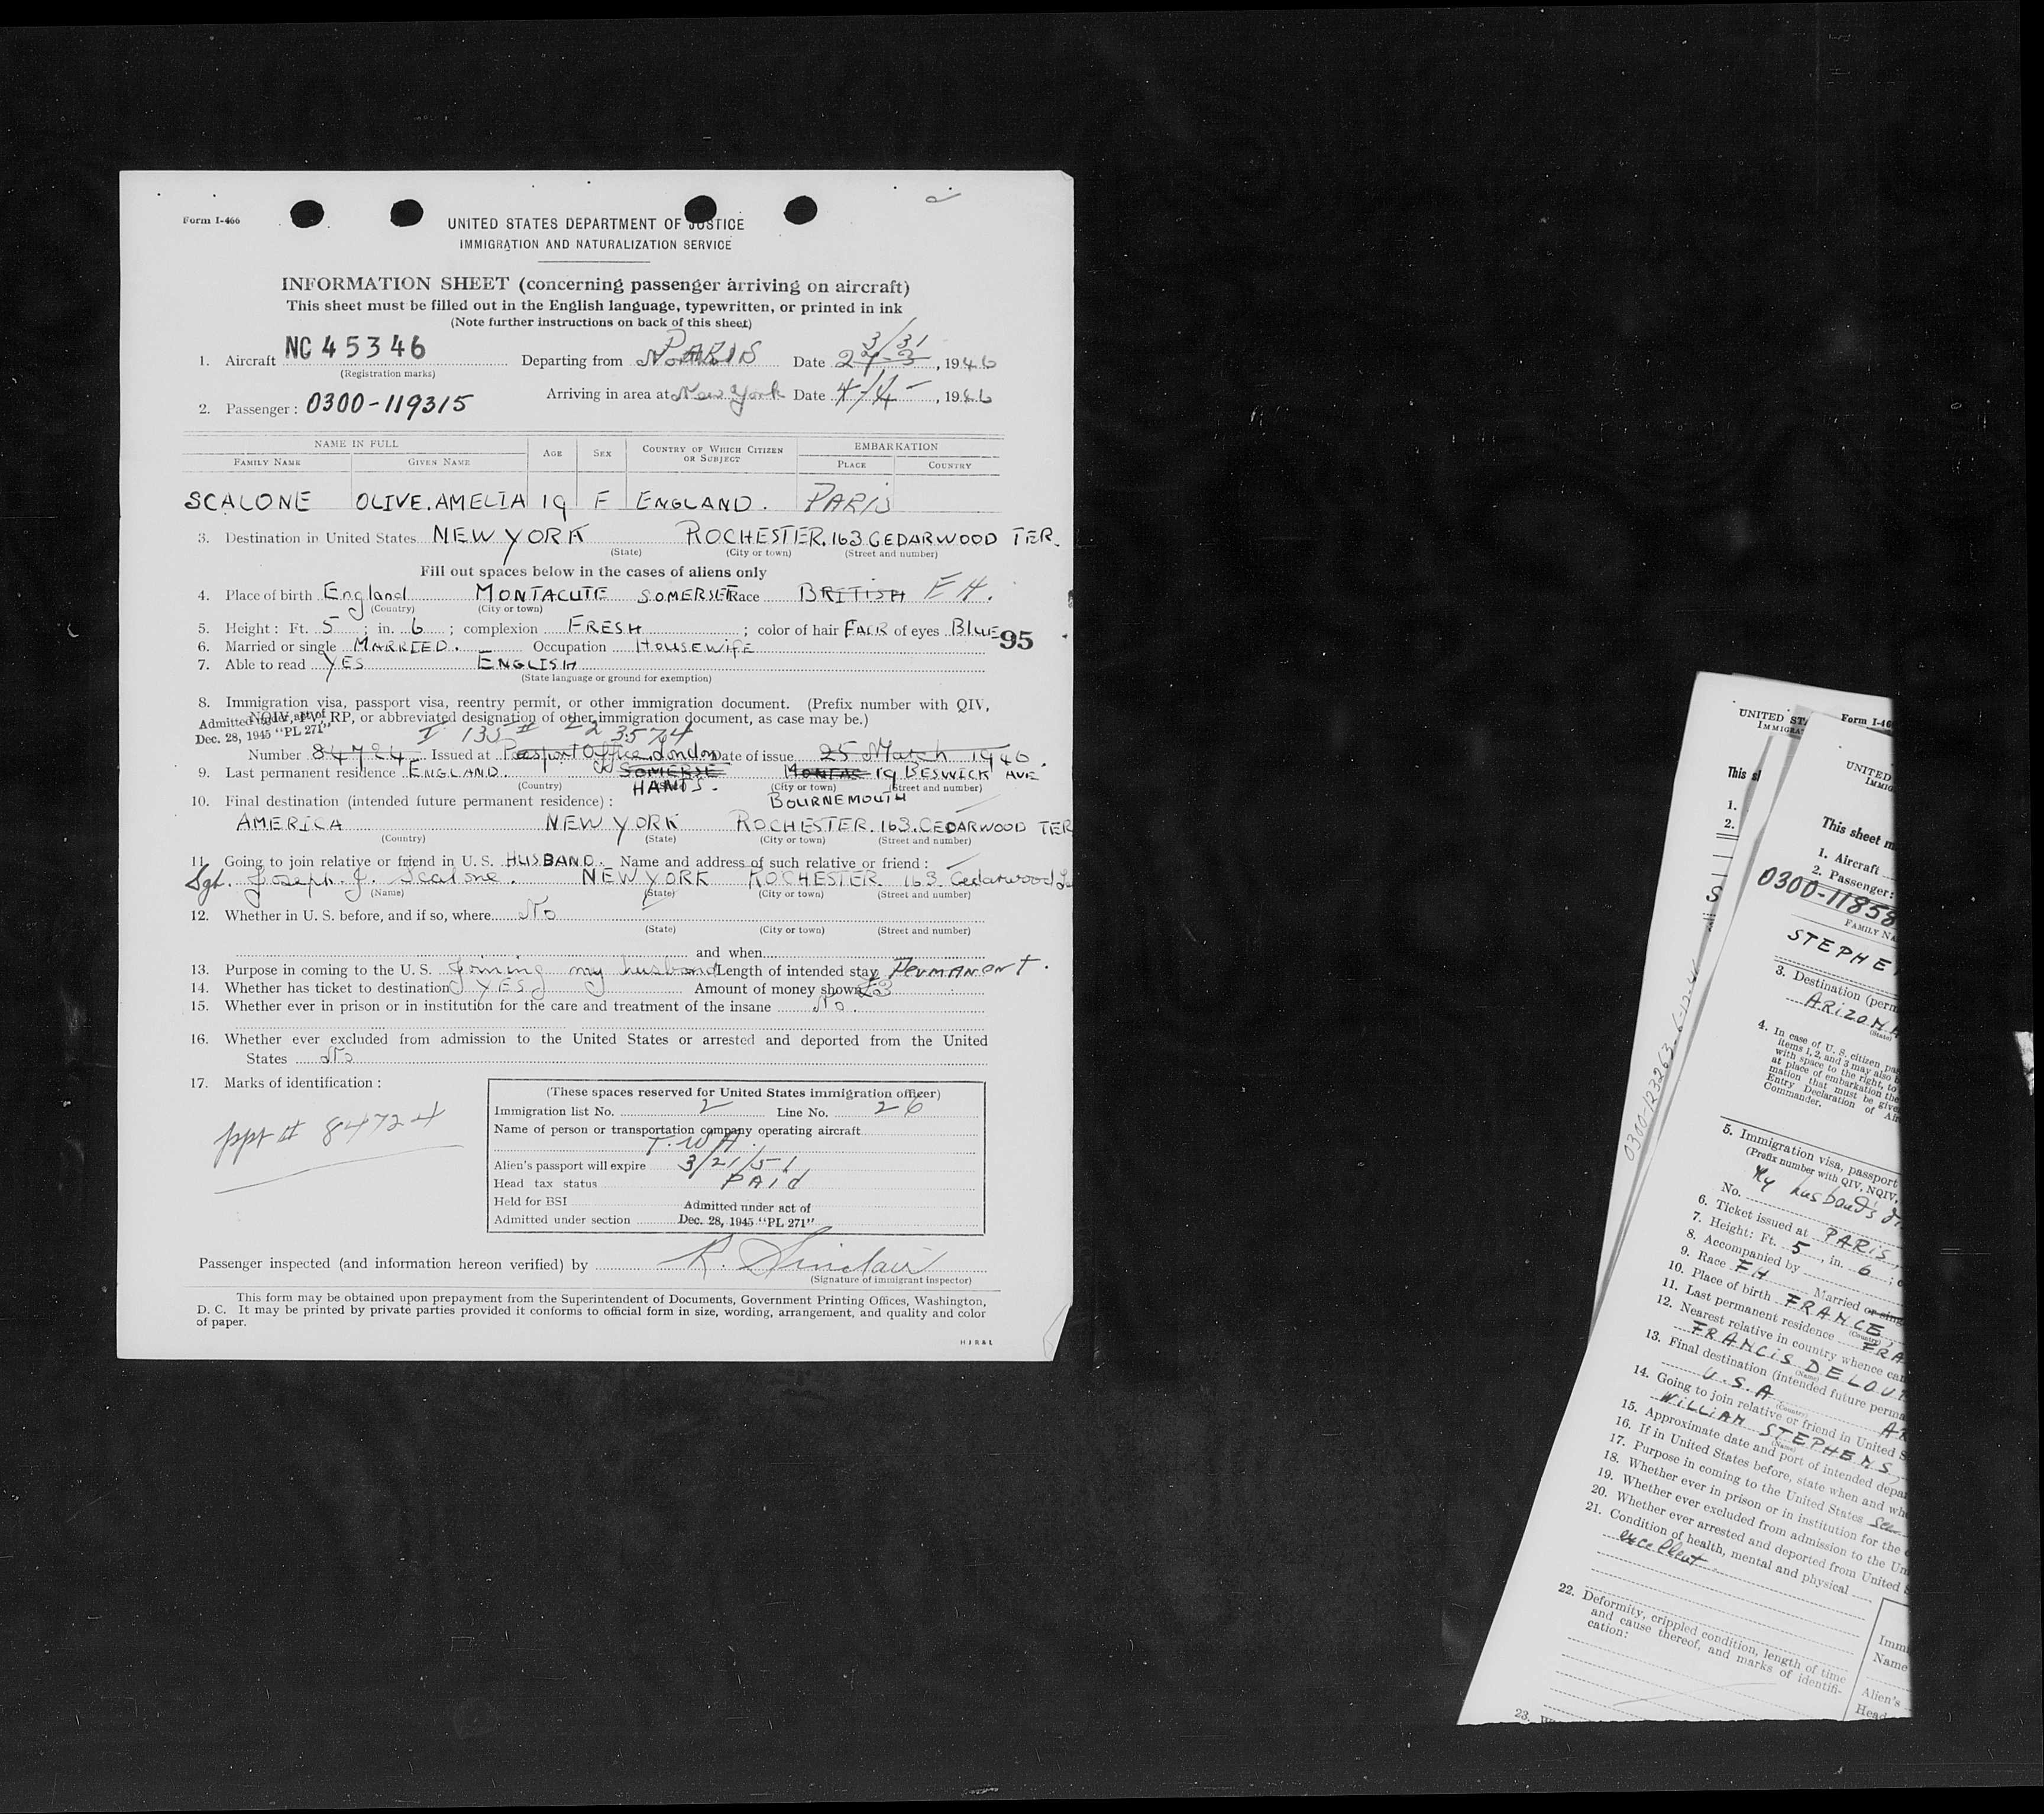 Form I-466
UNITED STATES DEPARTMENT OF JUSTICE
IMMIGRATION AND NATURALIZATION SERVICE
INFORMATION SHEET (concerning passenger arriving on aircraft)
This sheet must be filled out in the English language, typewritten, or printed in ink
(Note further instructions on back of this sheet)
1. Aircraft NC 45346 Departing from PARIS Date 3/31, 1946
(Registration marks)
Arriving in area at New York Date 4/4, 1946
2. Passenger: 0300-119315
NAME IN FULL AGE SEX COUNTRY OF WHICH CITIZEN OR SUBJECT EMBARKATION
FAMILY NAME GIVEN NAME PLACE COUNTRY
SCALONE OLIVE.AMELIA 19 F ENGLAND. PARIS
3. Destination in United States NEW YORK ROCHESTER. 163 CEDARWOOD TER.
(State) (City or town) (Street and number)
Fill out spaces below in the cases of aliens only
4. Place of birth England MONTACUTE SOMERSET Race BRITISH EH.
(Country) (City or town)
5. Height: Ft. 5; in. 6; complexion FRESH; color of hair FAIR of eyes BLUE
95
6. Married or single MARRIED. Occupation HOUSEWIFE
7. Able to read YES ENGLISH
(State language or ground for exemption)
8. Immigration visa, passport visa, reentry permit, or other immigration document. (Prefix number with QIV,
NQIV, PV, RP, or abbreviated designation of other immigration document, as case may be.)
Admitted under act of
Dec. 28, 1945 "PL 271"
Number 84724 Issued at Passport Office, London Date of issue 25 March 1946.
9. Last permanent residence ENGLAND. SOMERSE HANTS. 19 BESWICK AVE
(Country) (City or town) (Street and number)
BOURNEMOUTH
10. Final destination (intended future permanent residence):
AMERICA NEW YORK ROCHESTER. 163. CEDARWOOD TER
(Country) (State) (City or town) (Street and number)
11. Going to join relative or friend in U. S. HUSBAND. Name and address of such relative or friend:
Sgt. Joseph. J. Scalone. NEW YORK ROCHESTER. 163. Cedarwood
(Name) (State) (City or town) (Street and number)
12. Whether in U. S. before, and if so, where No
(State) (City or town) (Street and number)
and when
13. Purpose in coming to the U. S. Joining my husband Length of intended stay Permanent.
14. Whether has ticket to destination YES Amount of money shown £3
15. Whether ever in prison or in institution for the care and treatment of the insane No.
16. Whether ever excluded from admission to the United States or arrested and deported from the United
States No
17. Marks of identification:
ppt # 84724
(These spaces reserved for United States immigration officer)
Immigration list No. 2 Line No. 26
Name of person or transportation company operating aircraft
T.W.A.
Alien's passport will expire 3/21/51
Head tax status PAID
Held for BSI
Admitted under section Admitted under act of
Dec. 28, 1945 "PL 271"
Passenger inspected (and information hereon verified) by R. Sinclair
(Signature of immigrant inspector)
This form may be obtained upon prepayment from the Superintendent of Documents, Government Printing Offices, Washington,
D. C. It may be printed by private parties provided it conforms to official form in size, wording, arrangement, and quality and color
of paper.
UNITED
This
1.
2.
0300-123263
Form I-46
UNITED
This sheet m
1. Aircraft
2. Passenger:
0300-11858
FAMILY NA
STEPHE
3. Destination (perm
ARIZONA
(State)
4. In case of U. S. citizen
items 1, 2, and 3 may also
with space to the right, to
at place of embarkation the
mation that must be give
Entry Declaration of Air
Commander.
5. Immigration visa, passport
(Prefix number with QIV, NQIV,
No. My husband's
6. Ticket issued at PARIS
7. Height: Ft. 5, in. 6
8. Accompanied by
9. Race FH Married or sing
10. Place of birth FRANCE
(Country)
11. Last permanent residence FRA
12. Nearest relative in country whence
FRANCIS DELOU
(Name)
13. Final destination (intended future perma
U.S.A
(Country)
14. Going to join relative or friend in United S
WILLIAM STEPHENS
(Name)
15. Approximate date and port of intended depar
16. If in United States before, state when and wh
17. Purpose in coming to the United States
18. Whether ever in prison or in institution for the
19. Whether ever excluded from admission to the Un
20. Whether ever arrested and deported from United S
21. Condition of health, mental and physical
excellent
22. Deformity, crippled condition, length of time
and cause thereof, and marks of identifi-
cation:
23.
Imm
Name
Alien's
Head